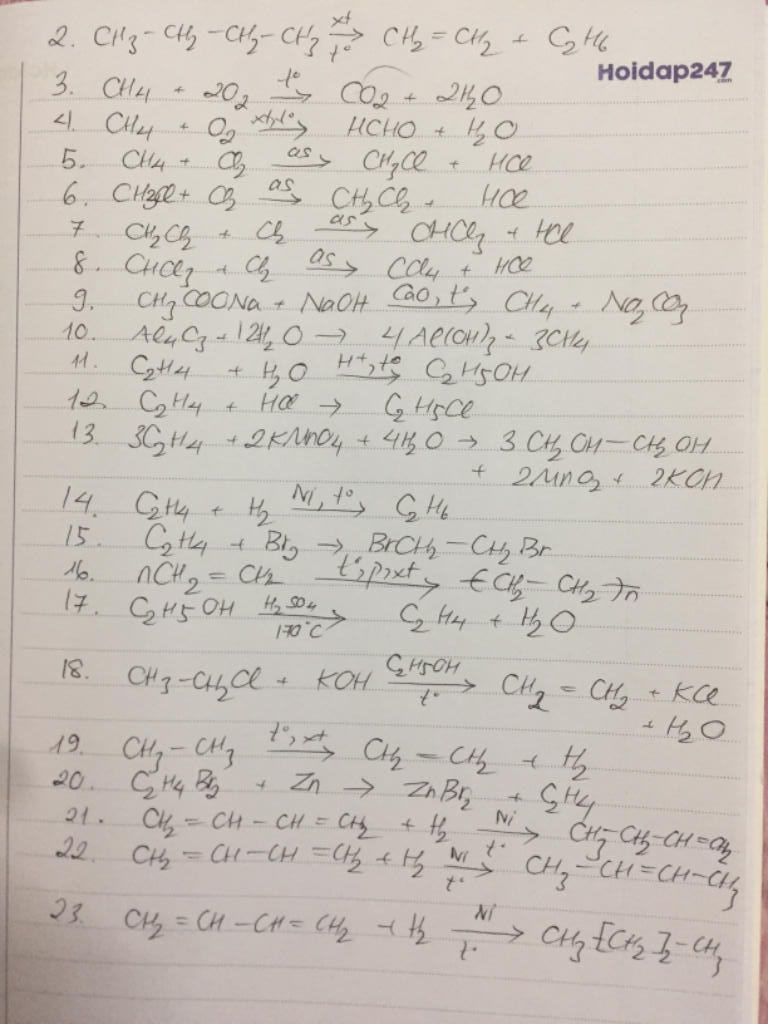 2. CH3 - CH2 - CH2 - CH3 xt→t° CH2 = CH2 + C2H6
Hoidap247
.com
3. CH4 + 2O2 t°→ CO2 + 2H2O
4. CH4 + O2 xt,t°→ HCHO + H2O
5. CH4 + Cl2 as→ CH3Cl + HCl
6. CH3Cl + Cl2 as→ CH2Cl2 + HCl
7. CH2Cl2 + Cl2 as→ CHCl3 + HCl
8. CHCl3 + Cl2 as→ CCl4 + HCl
9. CH3COONa + NaOH CaO, t°→ CH4 + Na2CO3
10. Al4C3 + 12H2O → 4Al(OH)3 + 3CH4
11. C2H4 + H2O H+, t°→ C2H5OH
12. C2H4 + HCl → C2H5Cl
13. 3C2H4 + 2KMnO4 + 4H2O → 3CH2OH - CH2OH
+ 2MnO2 + 2KOH
14. C2H4 + H2 Ni, t°→ C2H6
15. C2H4 + Br2 → BrCH2 - CH2Br
16. nCH2 = CH2 t°, p, xt→ (CH2 - CH2)n
17. C2H5OH H2SO4→170°C C2H4 + H2O
18. CH3-CH2Cl + KOH C2H5OH→t° CH2 = CH2 + KCl
+ H2O
19. CH3 - CH3 t°, xt→ CH2 = CH2 + H2
20. C2H4Br2 + Zn → ZnBr2 + C2H4
21. CH2 = CH - CH = CH2 + H2 Ni→t° CH3-CH2-CH=CH2
22. CH2 = CH - CH = CH2 + H2 Ni→t° CH3 - CH = CH - CH3
23. CH2 = CH - CH = CH2 + H2 Ni→t° CH3[CH2]2-CH3